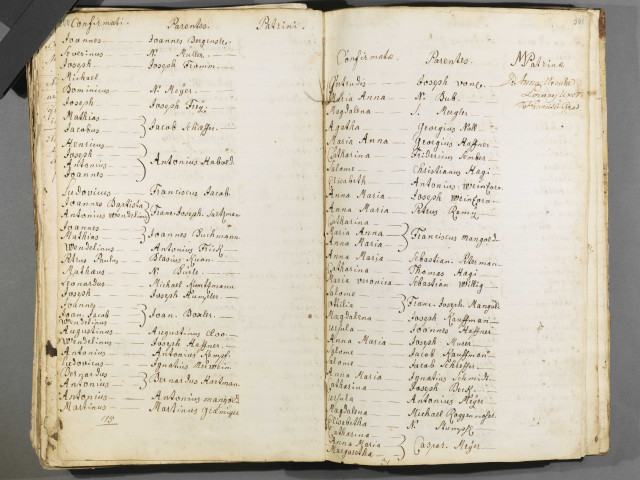 Confirmati. Parentes. Patrini.
Joannes Joannes Bergensle
Severinus N. Muller
Joseph Joseph Fromm
Michael
Dominicus N. Meÿer
Joseph Joseph Freÿ
Mathias
Jacobus Jacob Schaffer
Henricus
Joseph
Antonius Antonius Haberd
Joannes
Ludovicus Franciscus Jacob
Joannes Baptista
Antonius Wendelin Franc. Joseph
Joannes
Mathias Joannes Buchmann
Wendelinus Antonius Frick
Petrus Paulus Blasius
Mathaus N. Bürle
Leonardus Michael Kuntzmann
Joseph Joseph Humpler
Joannes
Joan Jacob Joan. Boxler
Wendelinus
Augustinus Augustinus
Wendelinus Joseph Haffner
Antonius Antonius Kempf
Ludovicus Ignatius
Bernardus
Antonius Bernardus Hartman
Antonius Antonius mangold
Martinus Martinus
Confirmatæ Parentes. Patrinæ
Gertrudis Joseph vonc
Maria Anna N. Bub
Magdalena J. Mergler
Agatha Georgius Noll
Maria Anna Georgius Haffner
Catharina Fridericus
Salome Christianus Hagi
Elisabeth Antonius Weinzorn
Anna Maria Joseph Weinzorn
Anna Maria Petrus
Catharina
Maria Anna Franciscus mangold
Anna Maria
Anna Maria Sebastian Ellerman
Catharina Thomas Hagi
Maria veronica Sebastian Willig
Salome
Ottilia Franc. Joseph Mangold
Magdalena Joseph Kauffman
Ursula Joannes Haffner
Anna Maria Joseph Murer
Salome Jacob Kauffman
Salome Jacob Schaffer
Anna Maria Ignatius Schmidt
Catharina Joseph Beck
Ursula Antonius Meÿer
Magdalena Michael Roggenmoser
Elisabetha N. Stumpf
Catharina
Anna Maria Caspar Meÿer
Margaretha